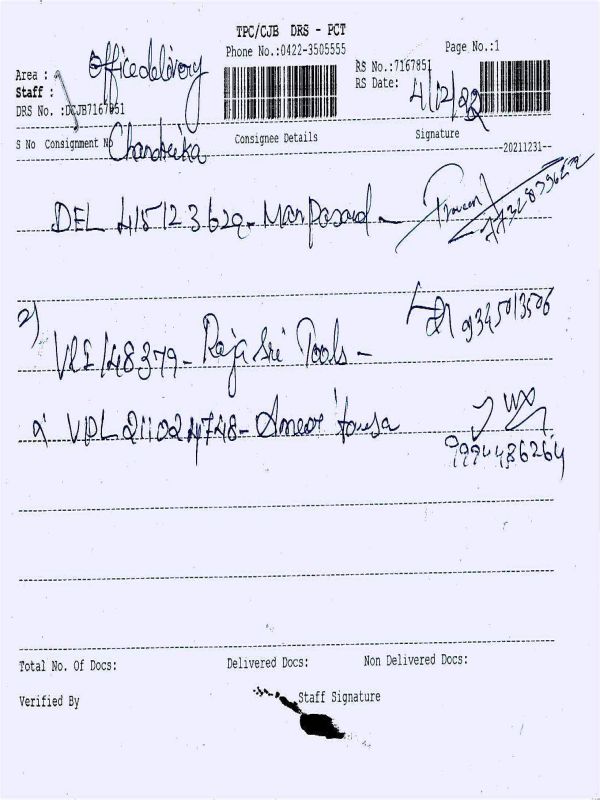 TPC/CJB DRS - PCT
Phone No.:0422-3505555
Page No.:1
RS No.:7167851
RS Date: 4/12/22
Area : Office delivery
Staff :
DRS No. :DCJB7167851
S No Consignment No Consignee Details Signature
Chandrika
--20211231--
DEL 415123629 - Manpasand -
Praveen
2)
VRE148379 - Raja Sri Tools -
9345013506
VPL 211024748 -
9994486264
Total No. Of Docs: Delivered Docs: Non Delivered Docs:
Verified By Staff Signature